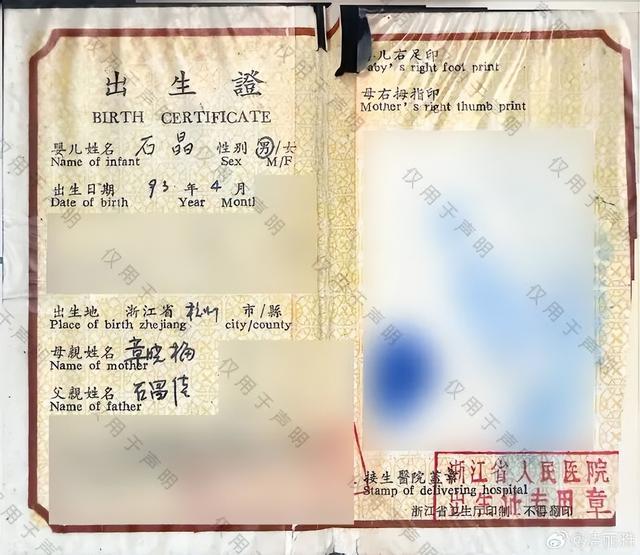 出生證
BIRTH CERTIFICATE
嬰儿姓名 石晶 性别 男/女
Name of infant Sex M/F
出生日期 93 年 4 月
Date of birth Year Montl
出生地 浙江省 杭州 市/縣
Place of birth zhejiang city/county
母親姓名 章晓梅
Name of mother
父親姓名 石昌
Name of father
儿右足印
aby's right foot print
母右拇指印
Mother's right thumb print
接生醫院蓋章
Stamp of delivering hospital
浙江省人民医院
出生证专用章
浙江省卫生厅印制 不得翻印
仅用于声明